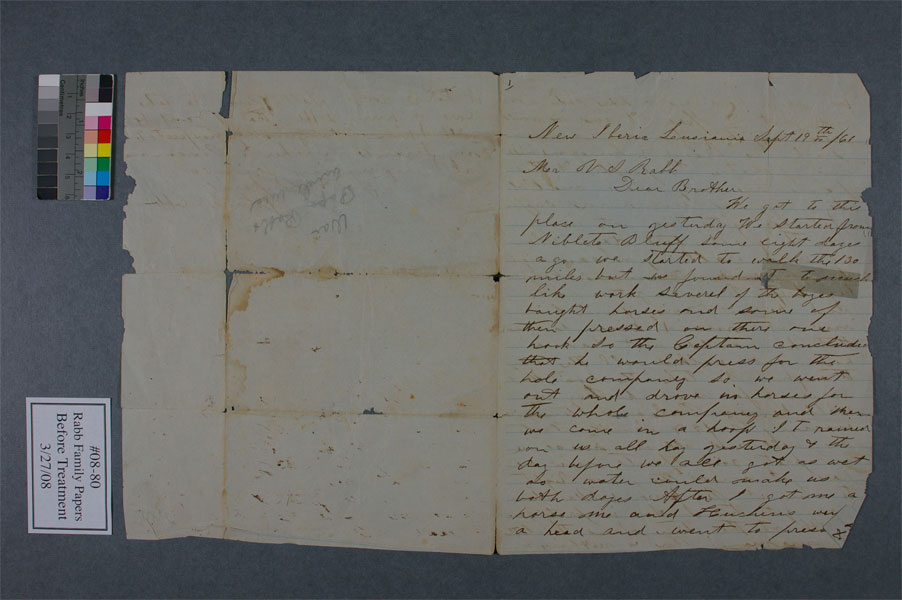 #08-80
Rabb Family Papers
Before Treatment
3/27/08
1
New Iberia Lousiania Sept 19th /61
Mr V S Rabb
Dear Brother
We got to this
place on yesterday We started from
Niblets Bluff some eight dayes
ago we started to walk the 130
miles but we found it to
like work several of the boyes
baught horses and some of
them pressed on there one
hook So the Captain conclude
that he would press for the
hole company so we went
out and drove in horses for
the whole company and
we come in a It rained
on us all day yesterday & the
day before we all got as wet
as water could make us
both dayes After I got me a
horse me and Huchins
a head and went to press